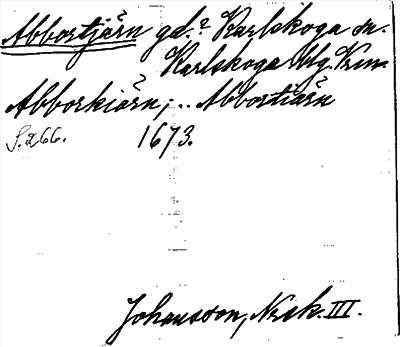 Abbortjärn gd.? Karlskoga sn.
Karlskoga btg. Krm.
Abborkiärn, ... Abbortiärn
S. 266. 1673.
Johansson, Nsk. III.